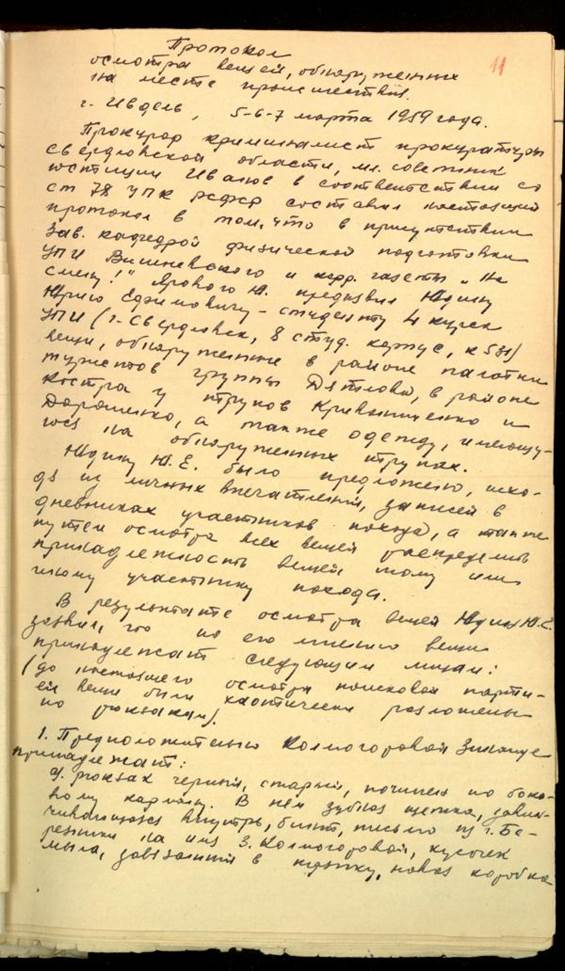 11
Протокол
осмотра вещей, обнаруженных
на месте происшествия.
г. Ивдель, 5-6-7 марта 1959 года.
Прокурор криминалист прокуратуры
Свердловской области, мл. советник
юстиции Иванов в соответствии со
ст 78 УПК РСФСР составил настоящий
протокол в том, что в присутствии
зав. кафедрой физической подготовки
УПИ Вишневского и корр. газеты „На
смену!" Ярового Ю. предъявил Юдину
Юрию Ефимовичу - студенту 4 курса
УПИ (г. Свердловск, 8 студ. корпус, к 531)
вещи, обнаруженные в районе палатки
туристов группы Дятлова, в районе
костра у трупов Кривонищенко и
Дорошенко, а также одежду, имеющу-
юся на обнаруженных трупах.
Юдину Ю.Е. было предложено, исхо-
дя из личных впечатлений, записей в
дневниках участников похода, а также
путем осмотра всех вещей распределить
принадлежность вещей тому или
иному участнику похода.
В результате осмотра вещей Юдин Ю.Е.
заявил, что по его мнению вещи
принадлежат следующим лицам:
(до настоящего осмотра поисковой парти-
ей вещи были хаотически разложены
по рюкзакам).
1. Предположительно Колмогоровой Зинаиде
принадлежат:
а). рюкзак черный, старый, починен по боко-
вому карману. В нем зубная щетка, завин-
чивающаяся внутрь, бинт, письмо из г. Бе-
резники на имя З. Колмогоровой, кусочек
мыла, завязанный в тряпку, новая коробка